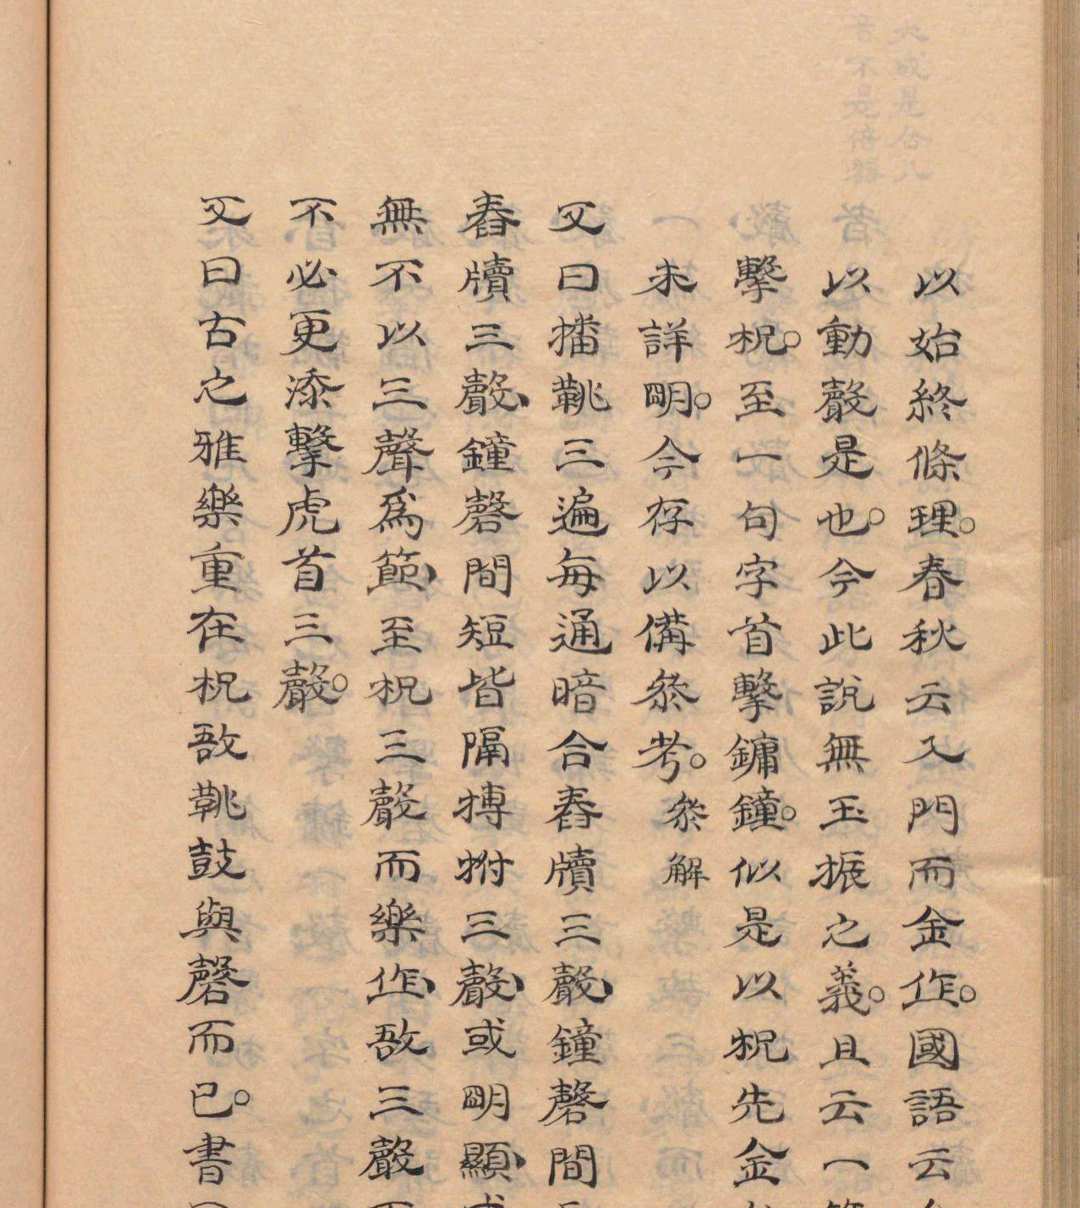 以始終條理。春秋云入門而金作。國語云
以動聲是也。今此說無玉振之義。且云一
擊柷。至一句字首擊鏞鐘。似是以柷先金
未詳明。今存以備叅考。叅解
又曰播鞉三遍每通暗合舂牘三聲、鐘磬間
舂牘三聲、鐘磬間短皆隔搏拊三聲、或明顯、或
無不以三聲爲節、至柷三聲而樂作、敔三聲
不必更添擊虎首三聲。
又曰古之雅樂重在柷敔鞉鼓與磬而已。書